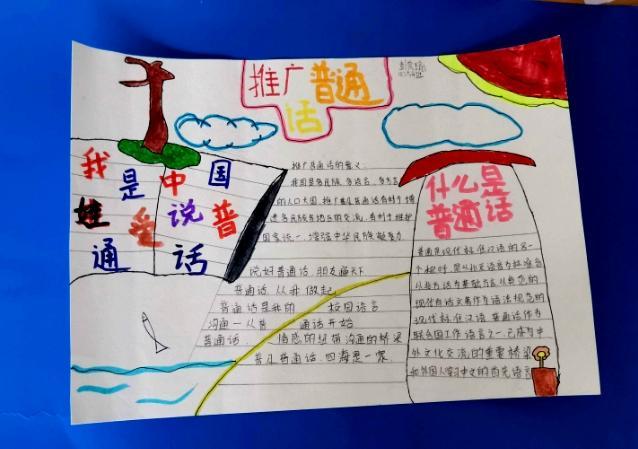 推广普通
话
我是中国
娃爱说普
通话
推广普通话的意义
我国是多民族、多语言、多方言
的人口大国,推广普及普通话有利于增
进各民族各地区的交流,有利于维护
国家统一,增强中华民族凝聚力
说好普通话,朋友遍天下
普通话,从我做起
普通话是我的 校园语言
沟通一从普 通话开始
普通话 情感的纽带 沟通的桥梁
普及普通话,四海是一家
什么是
普通话
普通话是现代标准汉语的另一
个称呼,是以北京语音为标准音
以北方话为基础方言,以典范的
现代白话文著作为语法规范的
现代标准汉语,普通话作为
联合国工作语言之一已成为中
外文化交流的重要桥梁
和外国人学习中文的首选语言